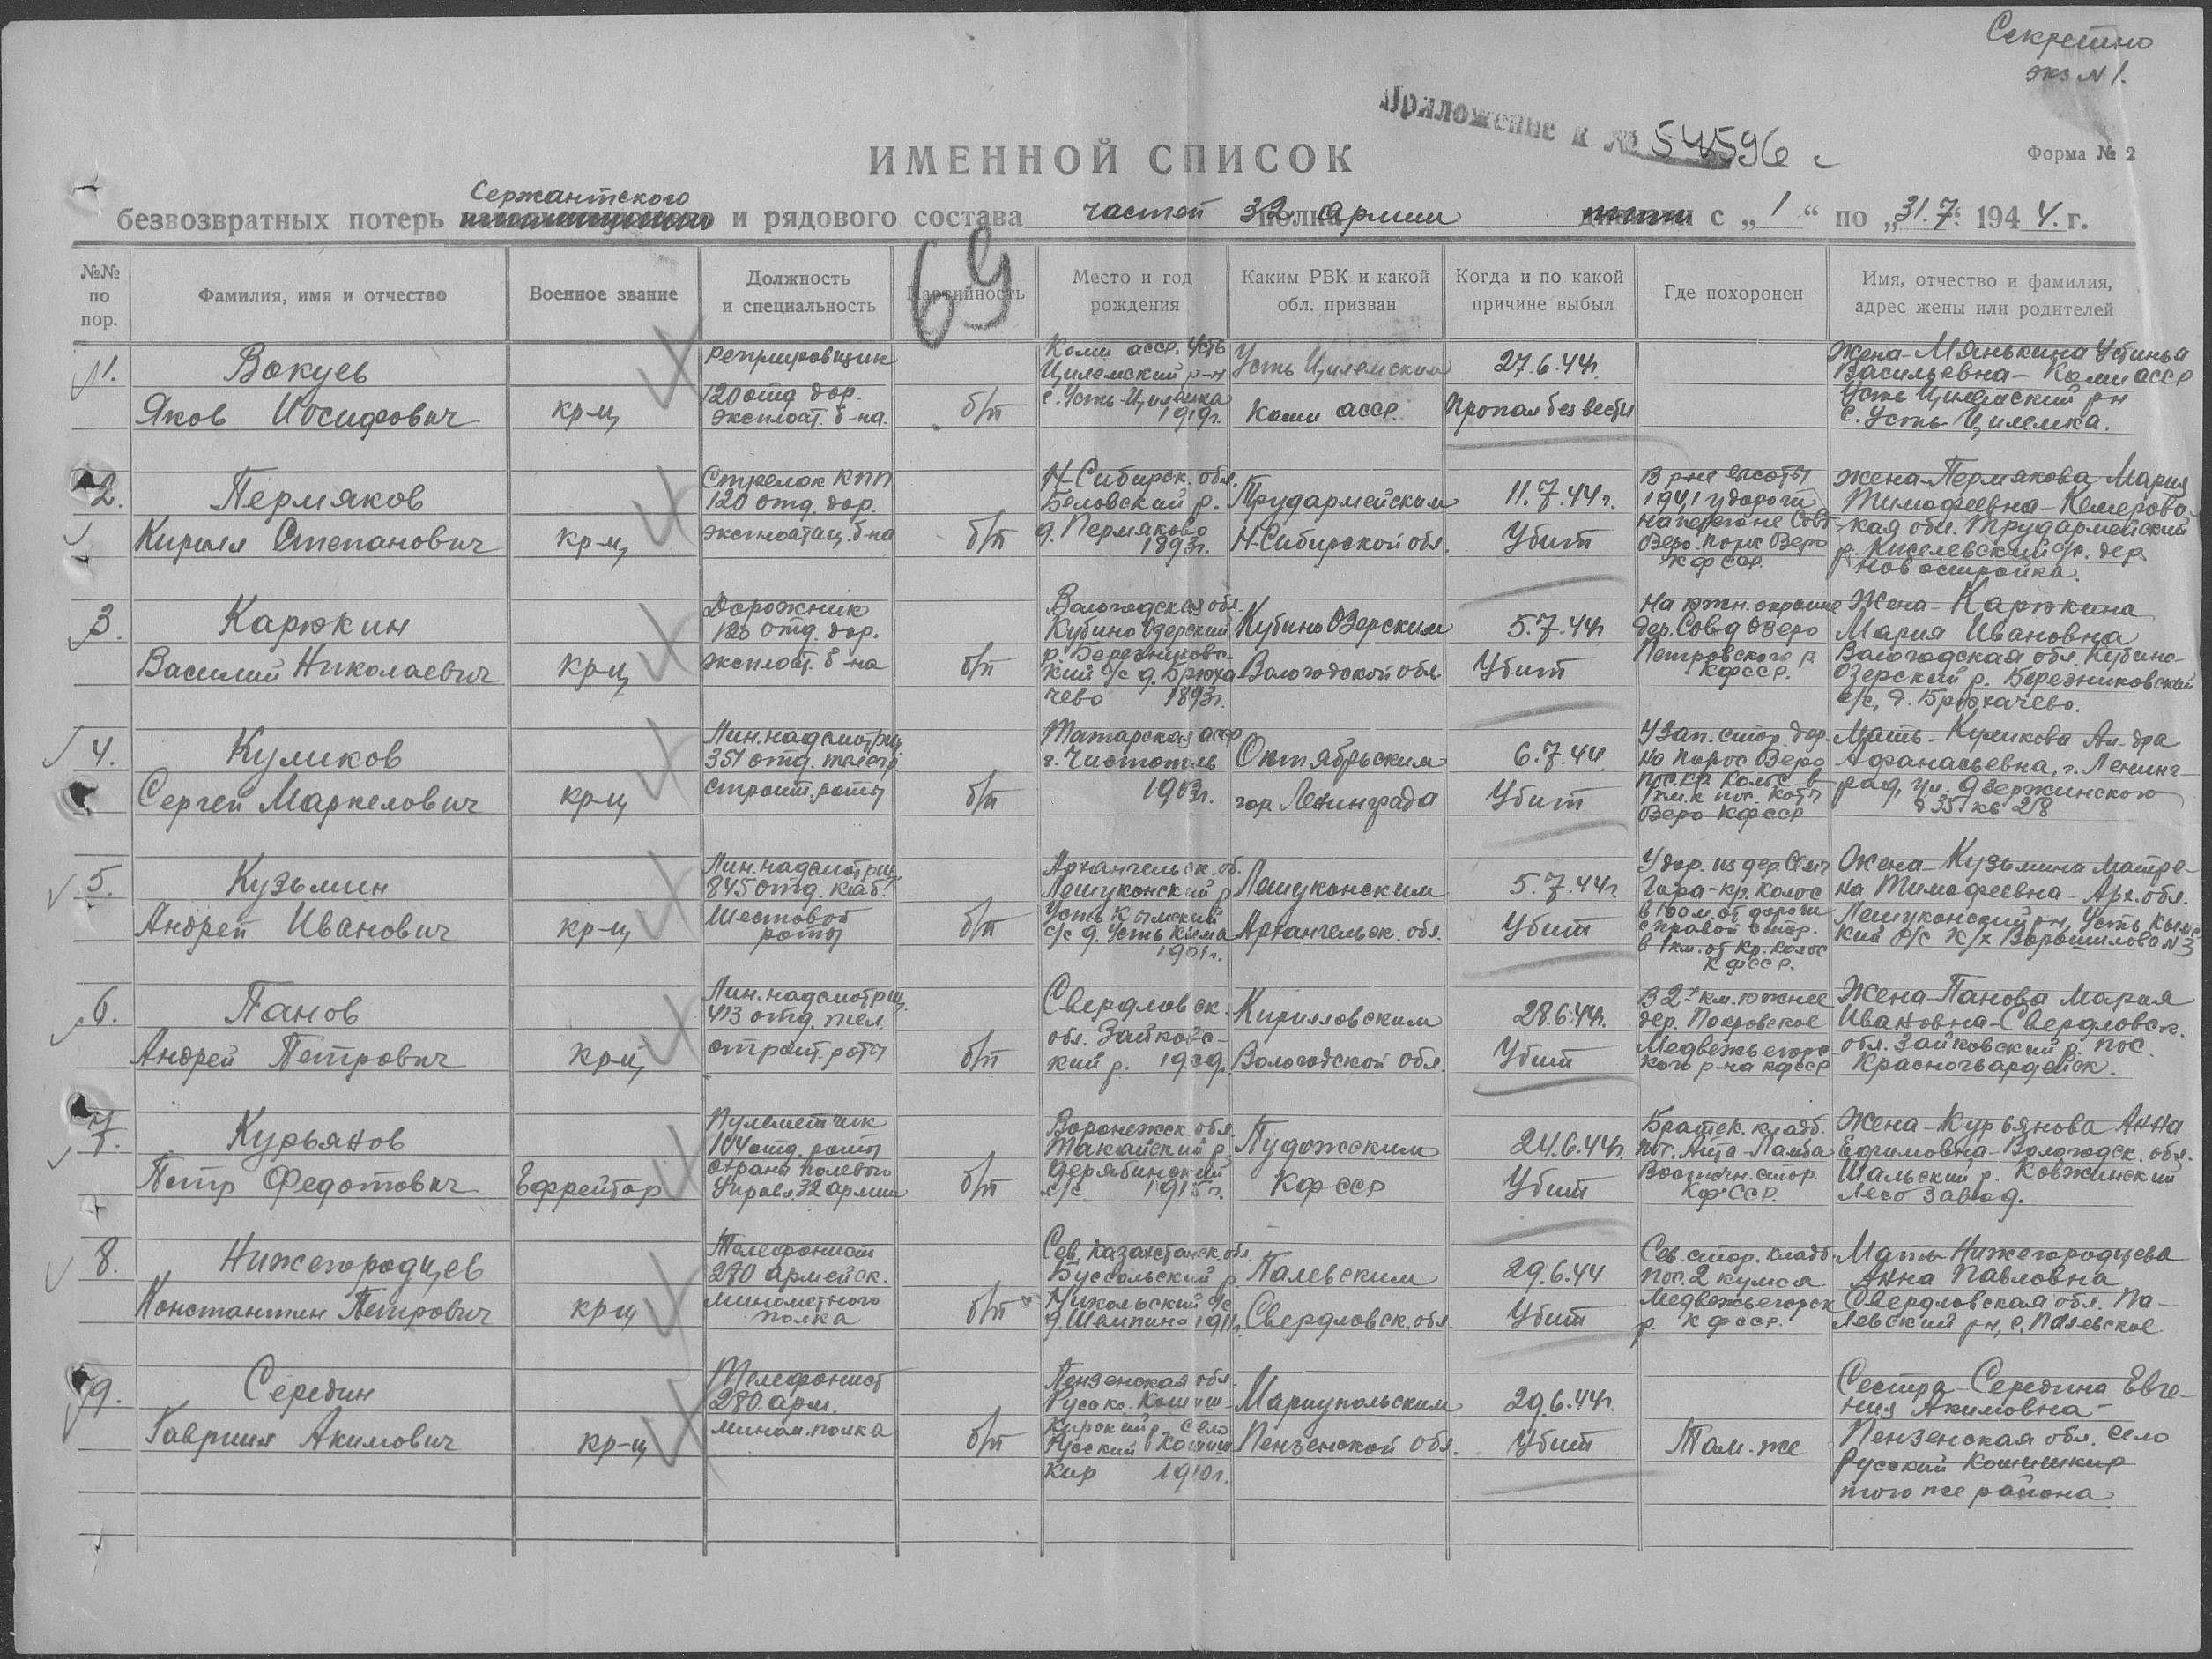 Секретно
экз № 1.
Приложение к № 54596 с
Форма № 2
ИМЕННОЙ СПИСОК
Сержантского
безвозвратных потерь и рядового состава частей 32 армии с „1“ по „31.7.“ 1944.г.
69
№№ по пор.
Фамилия, имя и отчество
Военное звание
Должность и специальность
Партийность
Место и год рождения
Каким РВК и какой обл. призван
Когда и по какой причине выбыл
Где похоронен
Имя, отчество и фамилия, адрес жены или родителей
1.
Вокуев
Яков Иосифович
кр-ц
120 отд дор.
эксплоат. б-на.
б/п
Коми асср. Усть
Цилемский р-н
с. Усть-Цилемка
1919г.
Усть Цилемским
Коми асср.
27.6.44г.
Пропал без вести
Жена-Мянькина Устинья
Васильевна-Коми асср
Усть Цилемский рн
с. Усть-Цилемка.
2.
Пермяков
Кирилл Степанович
кр-ц
Стрелок КПП
120 отд. дор.
эксплоатац. б-на
б/п
Н-Сибирск. обл.
Беловский р.
д. Пермяково
1893г.
Трудармейским
Н-Сибирской обл.
11.7.44г.
Убит
В р-не высоты
194,1 у дороги
на перегоне Совд
Зеро. Порк Зеро
КФССР.
Жена-Пермякова Мария
Тимофеевна-Кемеровс-
кая обл. Трудармейский
р. Киселевский с/с. дер
Новостройка.
3.
Карюкин
Василий Николаевич
кр-ц
Дорожник
120 отд. дор.
эксплоат. б-на
б/п
Вологодская обл.
Кубино Озерский
р. Березниковс-
кий с/с д. Брюха
чево 1893г.
Кубино Озерским
Вологодской обл.
5.7.44г
Убит
На южн. окраине
дер. Совд Озеро
Петровского р
КФССР.
Жена-Карюкина
Мария Ивановна
Вологодская обл. Кубино-
Озерский р. Березниковский
с/с, д. Брюхачево.
4.
Куликов
Сергей Маркелович
кр-ц
Лин. надсмотрщ.
351 отд. телегр
строит. роты
б/п
Татарская асср
г. Чистополь
1903г.
Октябрьским
гор Ленинграда
6.7.44
Убит
У зап. стор дор.
на Порос Зеро
КФССР
Мать-Куликова Ал-дра
Афанасьевна, г. Ленинг-
рад, ул. Дзержинского
д 35 кв 28
5.
Кузьмин
Андрей Иванович
кр-ц
Лин. надсмотрщ.
845 отд. каб.
Шестовой
роты
б/п
Архангельск. об.
Лешуконский р
Усть Кымский
с/с д. Усть Кыма
1901г.
Лешуконским
Архангельск. обл.
5.7.44г
Убит
Гора-кр. Колос
в 100 м. от дороги
с правой стор.
в 1 км. от Кр. Колос
КФССР.
Жена-Кузьмина Матре-
на Тимофеевна-Арх. обл.
Лешуконский рн, Усть Кымс-
кий с/с к/х Ворошилова №3
6.
Панов
Андрей Петрович
кр-ц
Лин. надсмотрщ.
413 отд. тел.
строит. роты
б/п
Свердловск.
обл. Зайковс-
кий р. 1909г.
Кирилловским
Вологодской обл.
28.6.44г.
Убит
В 2х км. южнее
дер. Покровское
Медвежьегорс-
кого р-на КФССР
Жена-Панова Мария
Ивановна-Свердловск.
обл. Зайковский р. пос.
Красногвардейск.
7.
Курьянов
Петр Федотович
Ефрейтор
Пулеметчик
104 отд. роты
охраны полевого
управл 32 армии
б/п
Воронежск. обл.
Токайский р.
Дерябинский
с/с 1915г.
Пудожским
КФССР
24.6.44г.
Убит
Братск. кладб.
Восточн. стор.
КФССР.
Жена-Курьянова Анна
Ефимовна-Вологодск. обл.
Шальский р. Ковжинский
Лесозавод.
8.
Нижегородцев
Константин Петрович
кр-ц
Телефонист
280 армейск.
минометного
полка
б/п
Сев. Казахстанск. обл.
Никольский с/с
Палевским
Свердловск. обл.
29.6.44
Убит
Сев. стор. кладб.
пос. 2 кумса
Медвежьегорск
р. КФССР.
Мать-Нижегородцева
Анна Павловна
Свердловская обл. Па-
левский рн, с. Палевское
9.
Середин
Гавриил Акимович
кр-ц
Телефонист
280 арм.
мином. полка
б/п
Пензенская обл.
кир 1910г.
Мариупольским
Пензенской обл.
29.6.44г.
Убит
Там-же
Сестра-Середина Евге-
ния Акимовна-
Пензенская обл. село
Русский Кошишкир
того же района